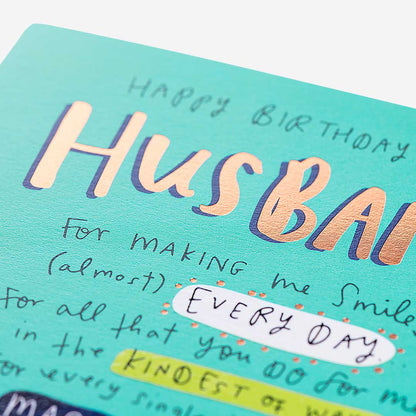 HAPPY BIRTHDAY
HUSBAN
For MAKING me Smile
(almost) EVERY DAY.
For all that you DO for me
in the KINDEST OF
for every single